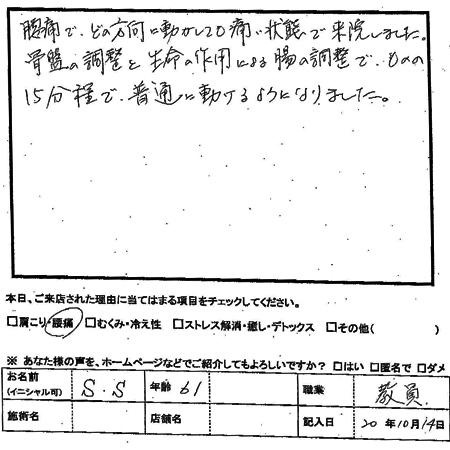 腰痛で、どの方向に動かしても痛い状態で来院しました。
骨盤の調整と生命の作用による腸の調整で、ものの
15分程で、普通に動けるようになりました。
本日、ご来店された理由に当てはまる項目をチェックしてください。
□肩こり・腰痛 □むくみ・冷え性 □ストレス解消・癒し・デトックス □その他( )
※ あなた様の声を、ホームページなどでご紹介してもよろしいですか? □はい □匿名で □ダメ
お名前 (イニシャル可) S.S 年齢 61 職業 教員
施術名 店舗名 記入日 20年10月14日